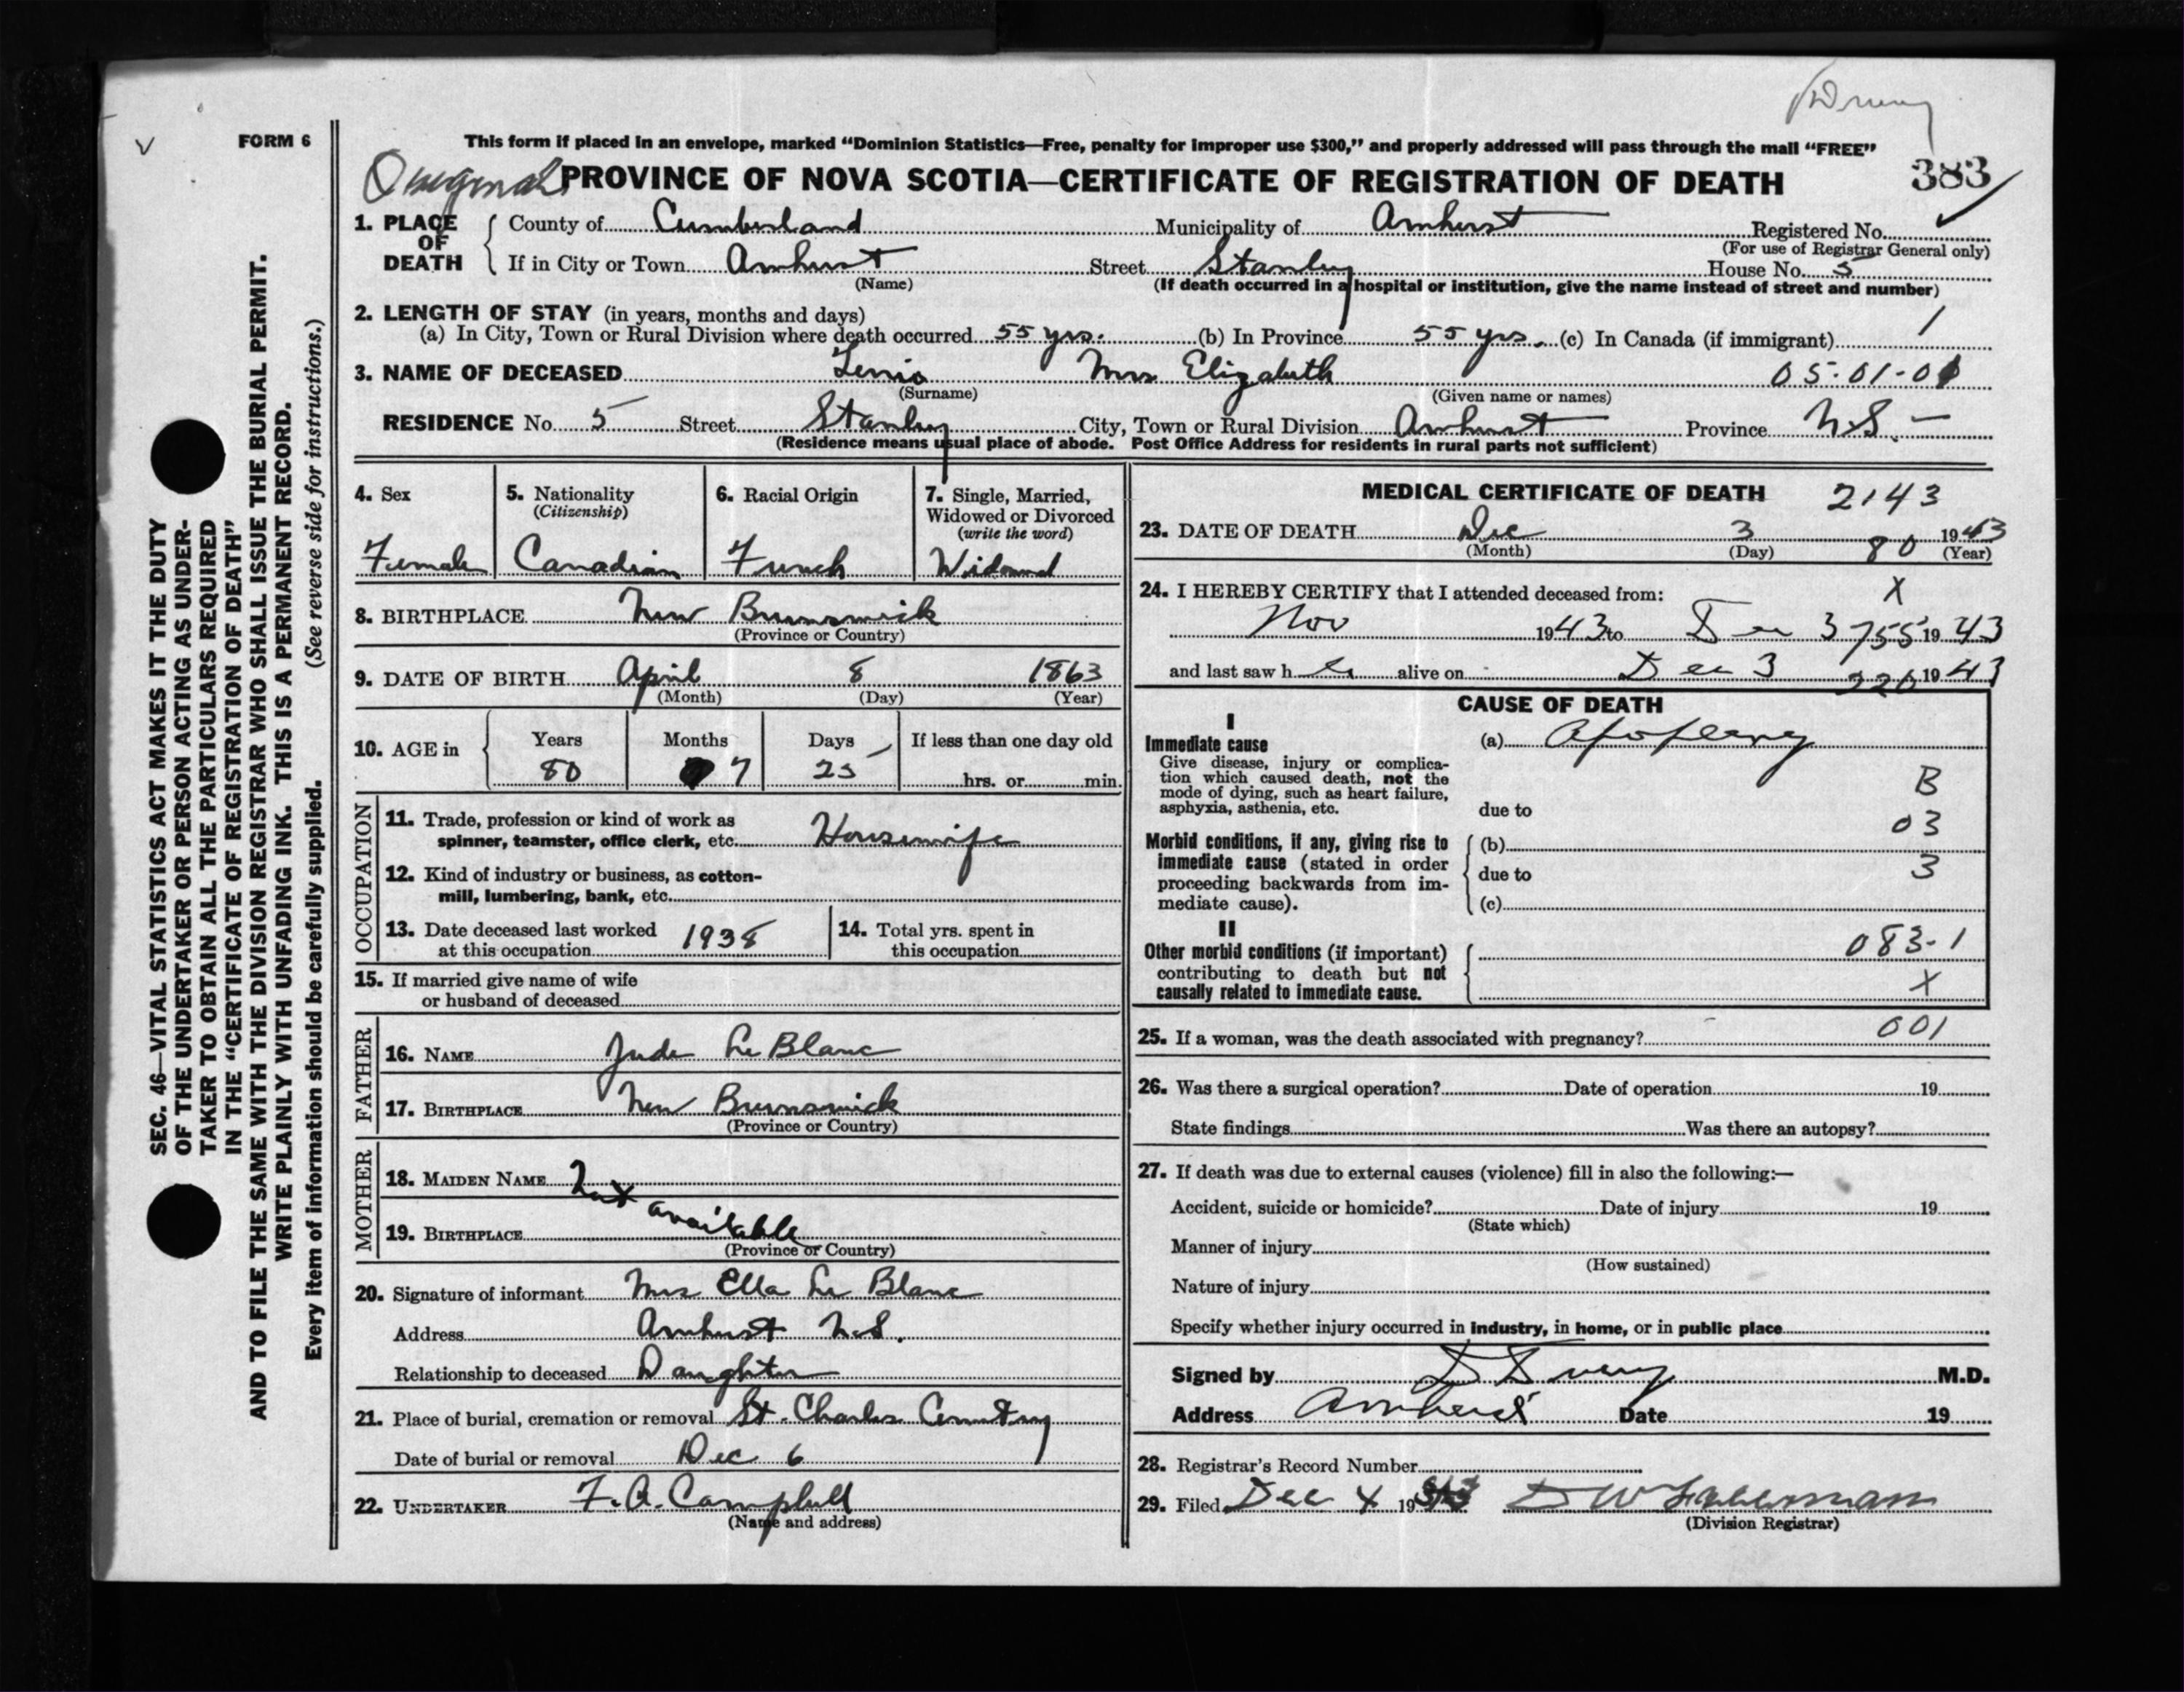 FORM 6
This form if placed in an envelope, marked “Dominion Statistics—Free, penalty for improper use $300,” and properly addressed will pass through the mail “FREE”
PROVINCE OF NOVA SCOTIA—CERTIFICATE OF REGISTRATION OF DEATH 383
1. PLACE OF DEATH County of Cumberland Municipality of Amherst Registered No.
(For use of Registrar General only)
If in City or Town Amherst Street Stanley House No. 5
(Name) (If death occurred in a hospital or institution, give the name instead of street and number)
2. LENGTH OF STAY (in years, months and days)
(a) In City, Town or Rural Division where death occurred 55 yrs. (b) In Province 55 yrs. (c) In Canada (if immigrant) /
3. NAME OF DECEASED Mrs Elizabeth 05-01-01
(Surname) (Given name or names)
RESIDENCE No. 5 Street Stanley City, Town or Rural Division Amherst Province N.S.
(Residence means usual place of abode. Post Office Address for residents in rural parts not sufficient)
4. Sex Female
5. Nationality (Citizenship) Canadian
6. Racial Origin French
7. Single, Married, Widowed or Divorced (write the word) Widowed
8. BIRTHPLACE New Brunswick
(Province or Country)
9. DATE OF BIRTH April 8 1863
(Month) (Day) (Year)
10. AGE in Years Months Days If less than one day old
80 7 25 hrs. or min.
OCCUPATION
11. Trade, profession or kind of work as
spinner, teamster, office clerk, etc. Housewife
12. Kind of industry or business, as cotton-
mill, lumbering, bank, etc.
13. Date deceased last worked
at this occupation 1938
14. Total yrs. spent in
this occupation
15. If married give name of wife
or husband of deceased
FATHER
16. NAME Jude Le Blanc
17. BIRTHPLACE New Brunswick
(Province or Country)
MOTHER
18. MAIDEN NAME Not
19. BIRTHPLACE available
(Province or Country)
20. Signature of informant Mrs Ella Le Blanc
Address Amherst N.S.
Relationship to deceased Daughter
21. Place of burial, cremation or removal St. Charles Cemetery
Date of burial or removal Dec 6
22. UNDERTAKER F. A. Campbell
(Name and address)
MEDICAL CERTIFICATE OF DEATH 2143
23. DATE OF DEATH Dec 3 1943
(Month) (Day) 80 (Year)
24. I HEREBY CERTIFY that I attended deceased from: X
Nov 1943 to Dec 3 755 1943
and last saw her alive on Dec 3 220 1943
CAUSE OF DEATH
I
Immediate cause
Give disease, injury or complica-
tion which caused death, not the
mode of dying, such as heart failure,
asphyxia, asthenia, etc.
(a) Apoplexy
B
due to
03
Morbid conditions, if any, giving rise to
immediate cause (stated in order
proceeding backwards from im-
mediate cause).
(b)
due to 3
(c)
II
Other morbid conditions (if important)
contributing to death but not
causally related to immediate cause.
083-1
X
25. If a woman, was the death associated with pregnancy? 001
26. Was there a surgical operation? Date of operation 19
State findings Was there an autopsy?
27. If death was due to external causes (violence) fill in also the following:—
Accident, suicide or homicide? Date of injury 19
(State which)
Manner of injury
(How sustained)
Nature of injury
Specify whether injury occurred in industry, in home, or in public place
Signed by M.D.
Address Amherst Date 19
28. Registrar's Record Number
29. Filed Dec 4 19
(Division Registrar)
SEC. 46—VITAL STATISTICS ACT MAKES IT THE DUTY
OF THE UNDERTAKER OR PERSON ACTING AS UNDER-
TAKER TO OBTAIN ALL THE PARTICULARS REQUIRED
IN THE “CERTIFICATE OF REGISTRATION OF DEATH”
AND TO FILE THE SAME WITH THE DIVISION REGISTRAR WHO SHALL ISSUE THE BURIAL PERMIT.
WRITE PLAINLY WITH UNFADING INK. THIS IS A PERMANENT RECORD.
Every item of information should be carefully supplied. (See reverse side for instructions.)